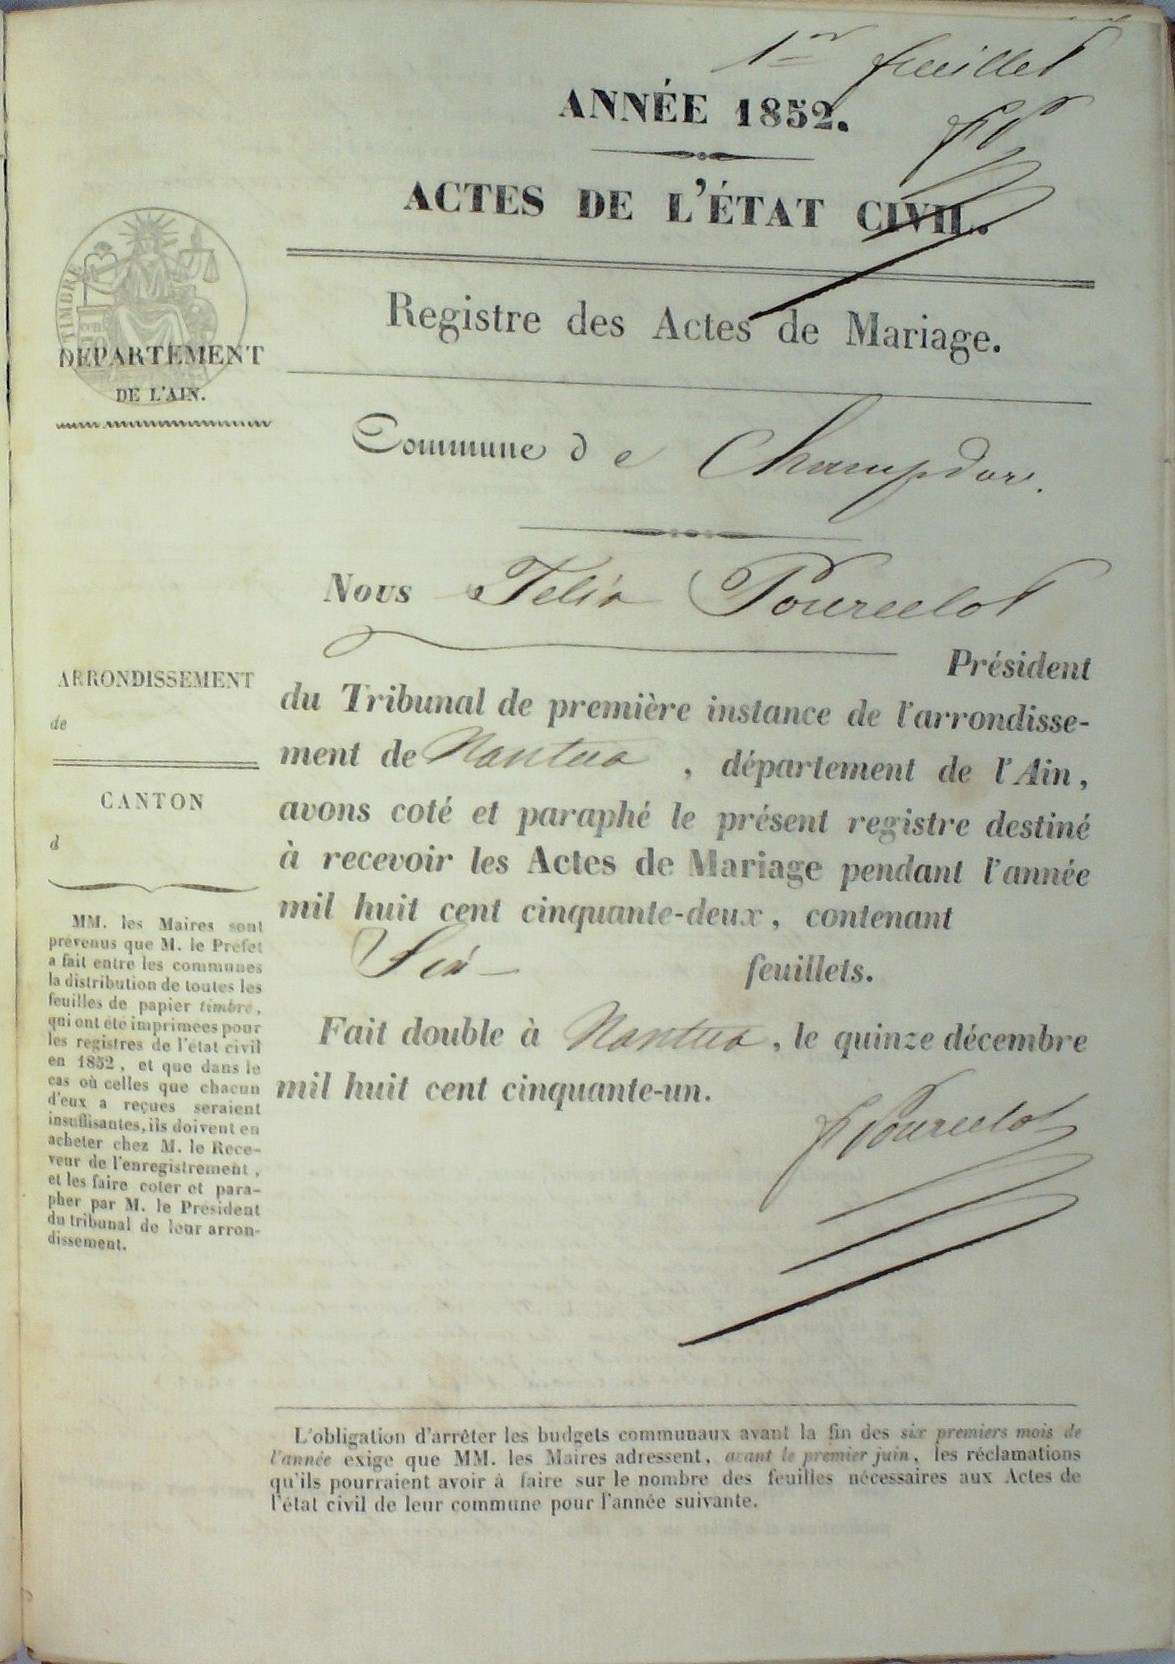 1er feuillet
ANNÉE 1852.
FP
ACTES DE L'ÉTAT CIVIL.
Registre des Actes de Mariage.
TIMBRE
DÉPARTEMENT
DE L'AIN.
Commune de Champdor.
Nous Félix Pourcelot
Président
du Tribunal de première instance de l'arrondisse-
ment de Nantua, département de l'Ain,
avons coté et paraphé le présent registre destiné
à recevoir les Actes de Mariage pendant l'année
mil huit cent cinquante-deux, contenant
Six feuillets.
Fait double à Nantua, le quinze décembre
mil huit cent cinquante-un.
F Pourcelot
ARRONDISSEMENT
de
CANTON
d
MM. les Maires sont
prévenus que M. le Préfet
a fait entre les communes
la distribution de toutes les
feuilles de papier timbré,
qui ont été imprimées pour
les registres de l'état civil
en 1852, et que dans le
cas où celles que chacun
d'eux a reçues seraient
insuffisantes, ils doivent en
acheter chez M. le Rece-
veur de l'enregistrement,
et les faire coter et para-
pher par M. le Président
du tribunal de leur arron-
dissement.
L'obligation d'arrêter les budgets communaux avant la fin des six premiers mois de
l'année exige que MM. les Maires adressent, avant le premier juin, les réclamations
qu'ils pourraient avoir à faire sur le nombre des feuilles nécessaires aux Actes de
l'état civil de leur commune pour l'année suivante.